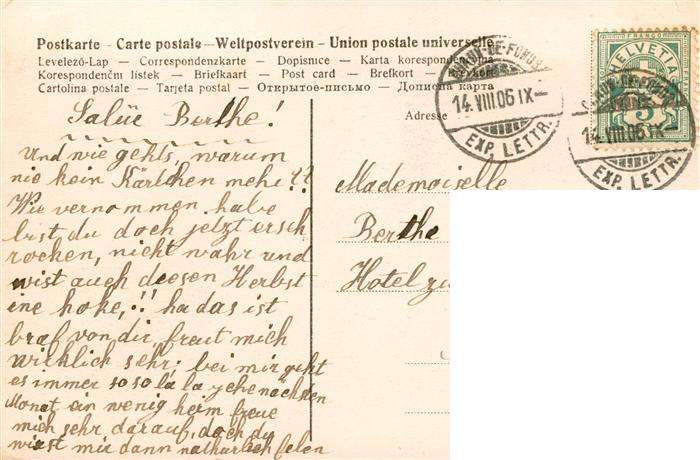 Postkarte - Carte postale - Weltpostverein - Union postale universelle
Levelező-Lap — Correspondenzkarte — Dopisnice — Karta korespondencyjna
Korespondenční lístek — Briefkaart — Post card — Brefkort —
Cartolina postale — Tarjeta postal — Открытое-письмо — Дописна карта
Adresse
CHAUX-DE-FONDS
14.VIII.06 IX—
EXP. LETTR.
FRANCO
HELVETIA
5
CHAUX-DE-FONDS
14.VIII.06 IX—
EXP. LETTR.
Salüe Berthe!
Und wie gehts, warum
nie kein Kärtchen mehr??
Wie vernommen habe
bist du doch jetzt ersch
rocken, nicht wahr und
wist auch diesen Herbst
ine hoke,!! ha das ist
braf von dir, freut mich
wirklich sehr; bei mir geht
es immer so so la la gehe nächsten
Monat ein wenig heim freue
mich sehr darauf, doch du
wirst mir dann natürlich felen
Mademoiselle
Berthe
Hotel zu